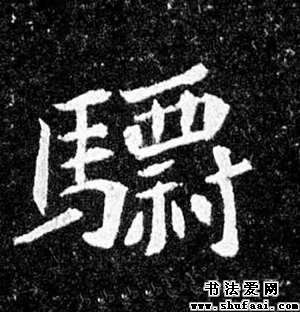 驃
书法爱网
www.shufaai.com